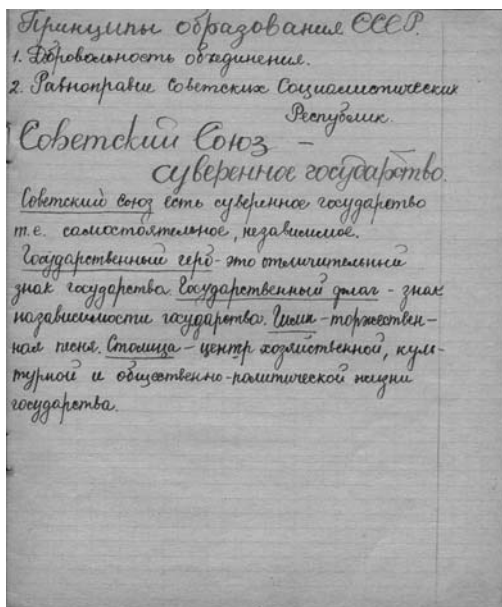 Принципы образования СССР.
1. Добровольность объединения.
2. Равноправие Советских Социалистических
Республик.
Советский Союз –
суверенное государство.
Советский Союз есть суверенное государство
т.е. самостоятельное, независимое.
Государственный герб - это отличительный
знак государства. Государственный флаг - знак
независимости государства. Гимн - торжествен-
ная песня. Столица - центр хозяйственной, куль-
турной и общественно-политической жизни
государства.